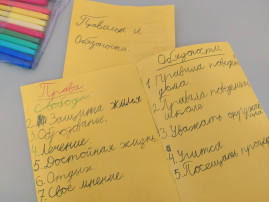 Правила и
Обязности.
Права
Свобода
2. Защита жизня
3. Образованы.
4. Лечение.
5. Достойная жизнь
6. Отдых
7. Своё мнение
Обязности
1 Правила поведен
дома
2. Правила поведения
школе
3. Уважать окружа
4. Учится
5. Посещать